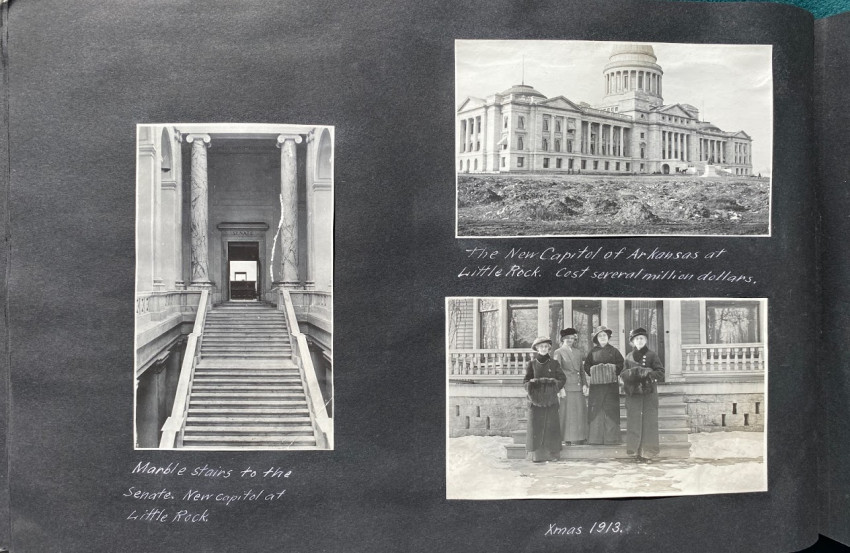 Marble stairs to the
Senate. New Capitol at
Little Rock.
The New Capitol of Arkansas at
Little Rock. Cost several million dollars.
Xmas 1913.